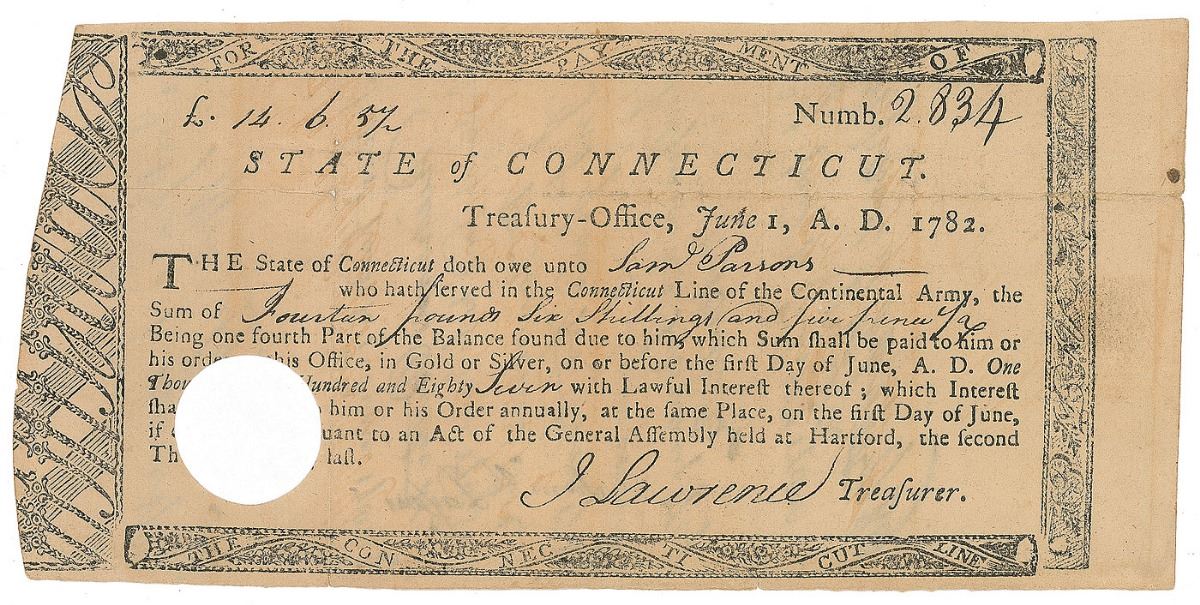 FOR THE PAY MENT OF
£. 14. 6. 5½ Numb. 2.834
STATE of CONNECTICUT.
Treaſury-Office, June 1, A. D. 1782.
THE State of Connecticut doth owe unto Samˡ Parsons
who hath ſerved in the Connecticut Line of the Continental Army, the
Sum of Fourteen pounds Six Shillings and five pence ½
Being one fourth Part of the Balance found due to him, which Sum ſhall be paid to him or
his order this Office, in Gold or Silver, on or before the firſt Day of June, A. D. One
Thou Hundred and Eighty Seven with Lawful Intereſt thereof; which Intereſt
ſha him or his Order annually, at the ſame Place, on the firſt Day of June,
if uant to an Act of the General Aſſembly held at Hartford, the ſecond
Th laſt.
J Lawrence Treaſurer.
THE CON NEC TI CUT LINE